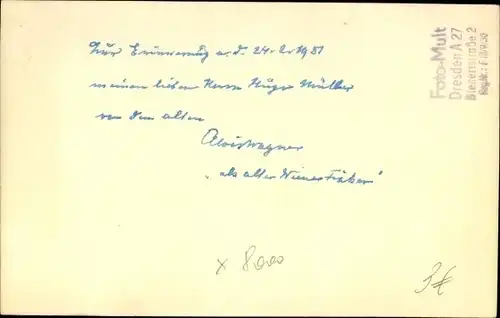 Zur Erinnerung a. d. 24.2.1951
meinem lieben Herrn Hugo Müller
von dem alten
Alois Wagner
„als alter Wiener Fiaker"
x 8000
3€
Foto-Mult
Dresden A 27
Bienertstraße 2